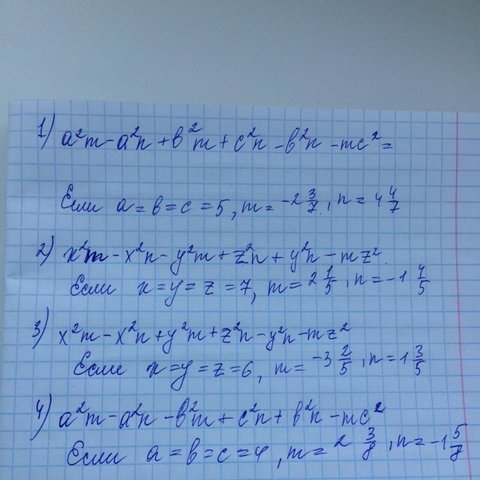 1) a²m - a²n + b²m + c²n - b²n - mc² =
Если a = b = c = 5, m = -2 3/7, n = 4 4/7
2) x²m - x²n - y²m + z²n + y²n - mz²
Если x = y = z = 7, m = 2 1/5, n = -1 4/5
3) x²m - x²n + y²m + z²n - y²n - mz²
Если x = y = z = 6, m = -3 2/5, n = 1 3/5
4) a²m - a²n - b²m + c²n + b²n - mc²
Если a = b = c = 4, m = 2 3/8, n = -1 5/8